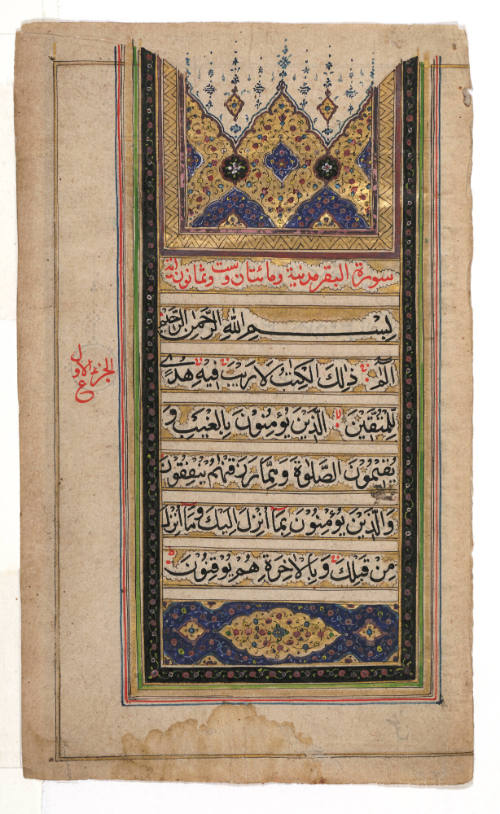 سورة البقر مدنية ومائتان وست وثمانون اية
بسم الله الرحمن الرحيم
الم ذلك الكتب لا ريب فيه هدى
للمتقين الذين يؤمنون بالغيب و
يقيمون الصلوة ومما رزقنهم ينفقون
والذين يؤمنون بما انزل اليك وما انزل
من قبلك وبالاخرة هم يوقنون
الجزء الاول